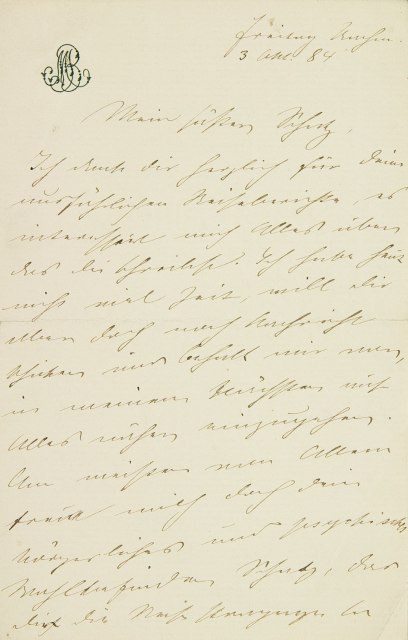 Freitag Nachm.
3 Okt. 84
Mein süßer Schatz,
Ich danke dir herzlich für deine
ausführlichen Reiseberichte, es
interessirt mich Alles über
das du schreibst. Ich habe heut
nicht viel Zeit, will dir
aber doch noch Nachricht
schicken und behalt mir vor,
in meinem Nächsten auf
Alles näher einzugehen.
Am meisten von Allem
freut mich doch dein
körperliches und psychisches
Wohlbefinden Schatz, das
dir die Reise